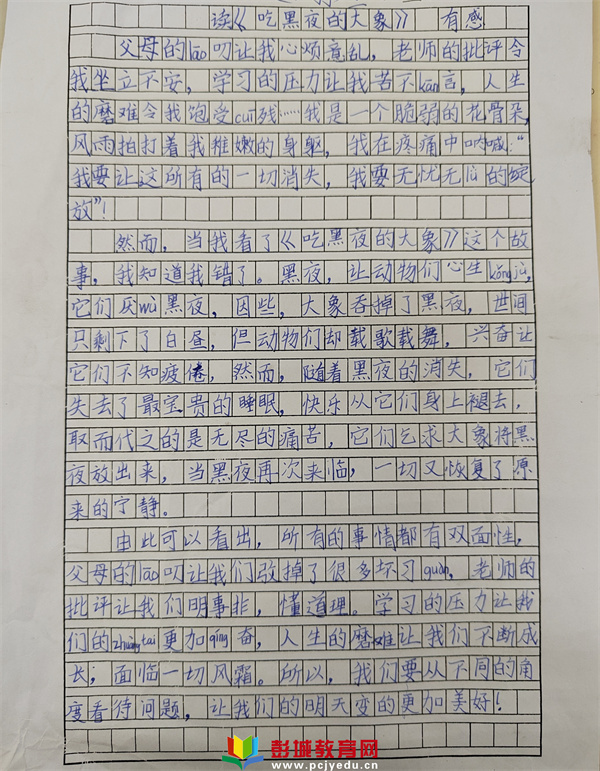 读《吃黑夜的大象》有感
父母的lāo叨让我心烦意乱，老师的批评令
我坐立不安，学习的压力让我苦不kān言，人生
的磨难令我饱受cuī残……我是一个脆弱的花骨朵，
风雨拍打着我稚嫩的身躯，我在疼痛中呐喊：“
我要让这所有的一切消失，我要无忧无lǜ的绽
放”！
然而，当我看了《吃黑夜的大象》这个故
事，我知道我错了。黑夜，让动物们心生kǒng jù，
它们厌wù黑夜，因些，大象吞掉了黑夜，世间
只剩下了白昼，但动物们却载歌载舞，兴奋让
它们不知疲倦，然而，随着黑夜的消失，它们
失去了最宝贵的睡眠，快乐从它们身上褪去，
取而代之的是无尽的痛苦，它们乞求大象将黑
夜放出来，当黑夜再次来临，一切又恢复了原
来的宁静。
由此可以看出，所有的事情都有双面性，
父母的lāo叨让我们改掉了很多坏习guàn，老师的
批评让我们明事非，懂道理。学习的压力让我
们的zhuàng tai更加qíng奋，人生的磨难让我们不断成
长；面临一切风霜。所以，我们要从不同的角
度看待问题，让我们的明天变的更加美好！
彭城教育网
www.pcjyedu.cn